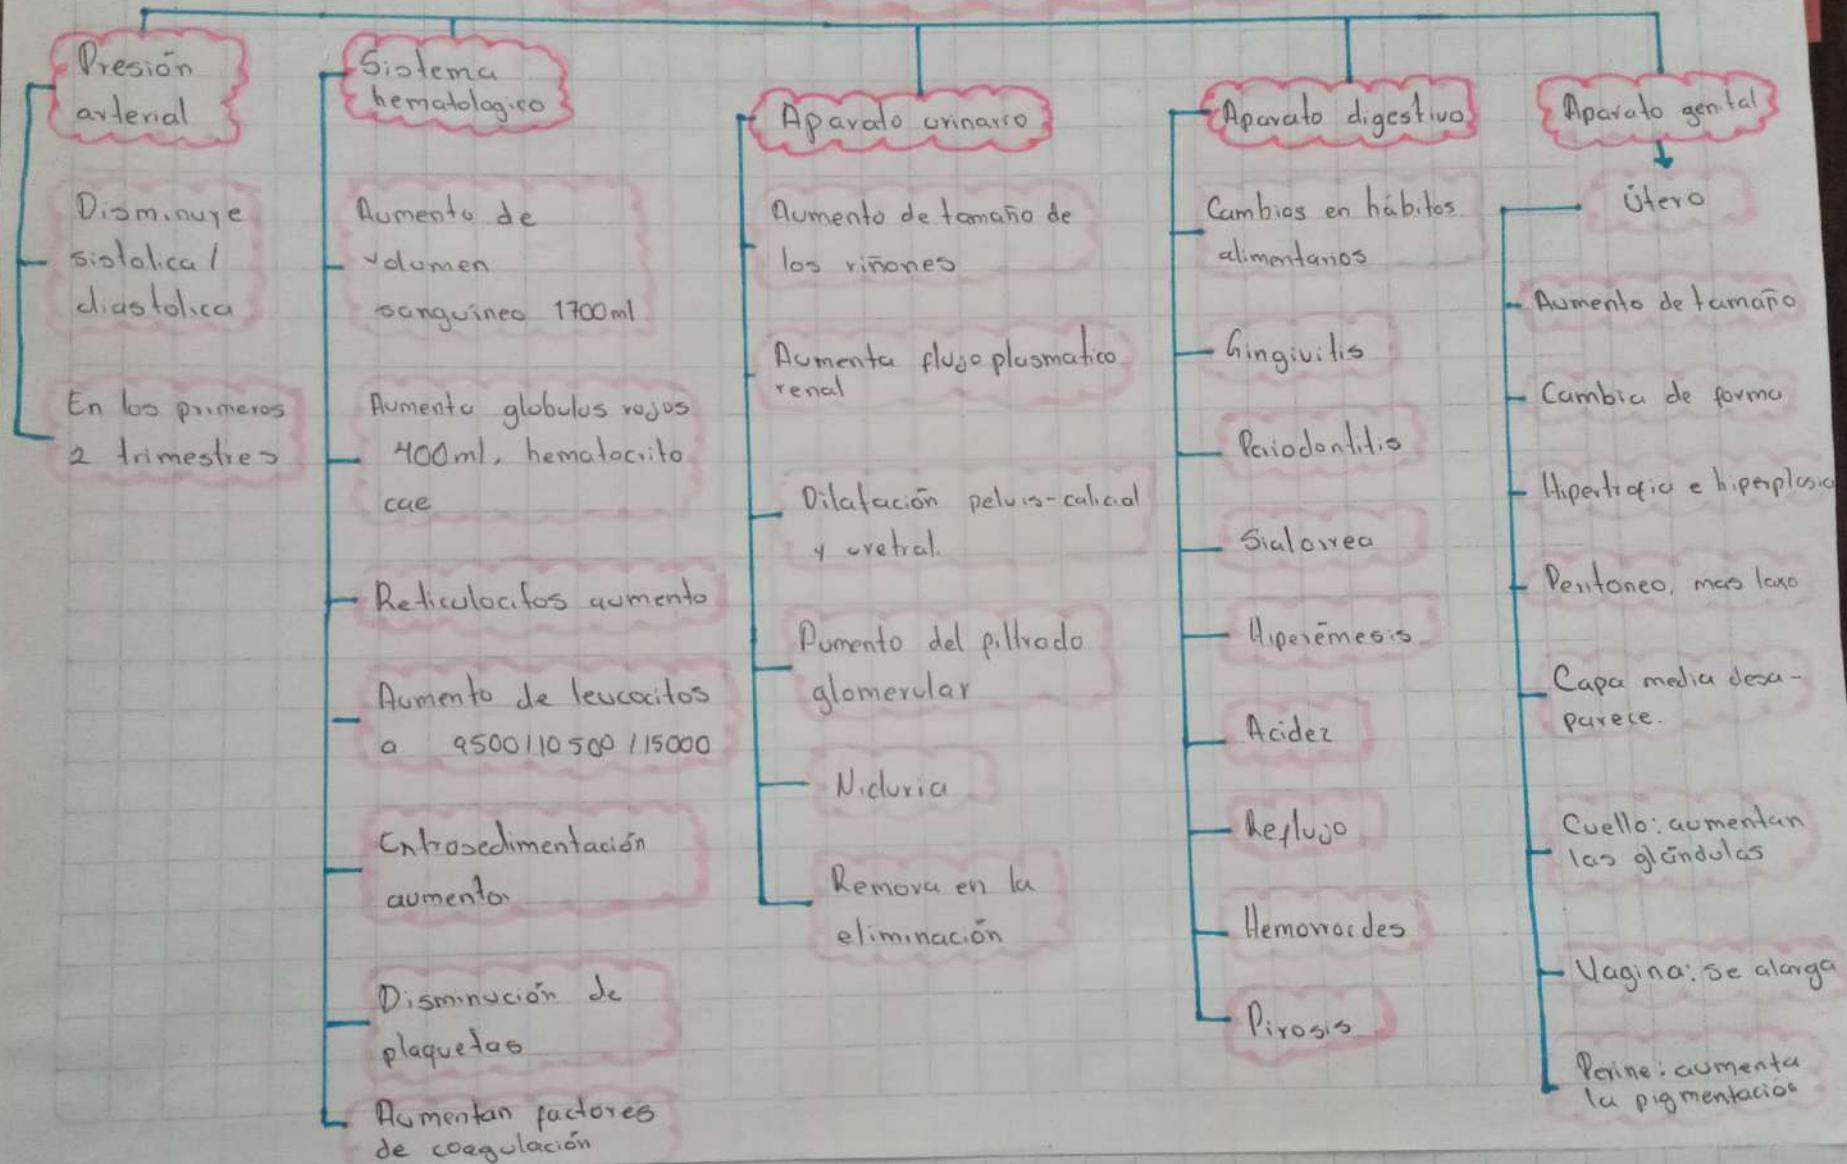 Presión
arterial
Disminuye
sistolica/
diastolica
En los primeros
2 trimestres
Sistema
hematologico
Aumento de
volumen
sanguineo 1700ml
Aumenta globulos rojos
400ml, hematocrito
cae
Reticulocitos aumento
Aumento de leucocitos
a 9500/10500/15000
Entrosedimentación
aumento
Disminución de
plaquetas
Aumentan factores
de coagulación
Aparato urinario
Aumento de tamaño de
los riñones
Aumenta flujo plasmatico
renal
Dilatación pelvis-calicial
y uretral.
Aumento del filtrado
glomerular
Nicturia
Remora en la
eliminación
Aparato digestivo
Cambios en hábitos
alimentarios
Gingivitis
Periodontitis
Sialorrea
Hiperémesis
Acidez
Reflujo
Hemorroides
Pirosis
Aparato genital
Útero
Aumento de tamaño
Cambia de forma
Hipertrofia e hiperplasia
Peritoneo, mas laxo
Capa media desa-
parece.
Cuello: aumentan
las glándulas
Vagina: se alarga
Perine: aumenta
la pigmentación